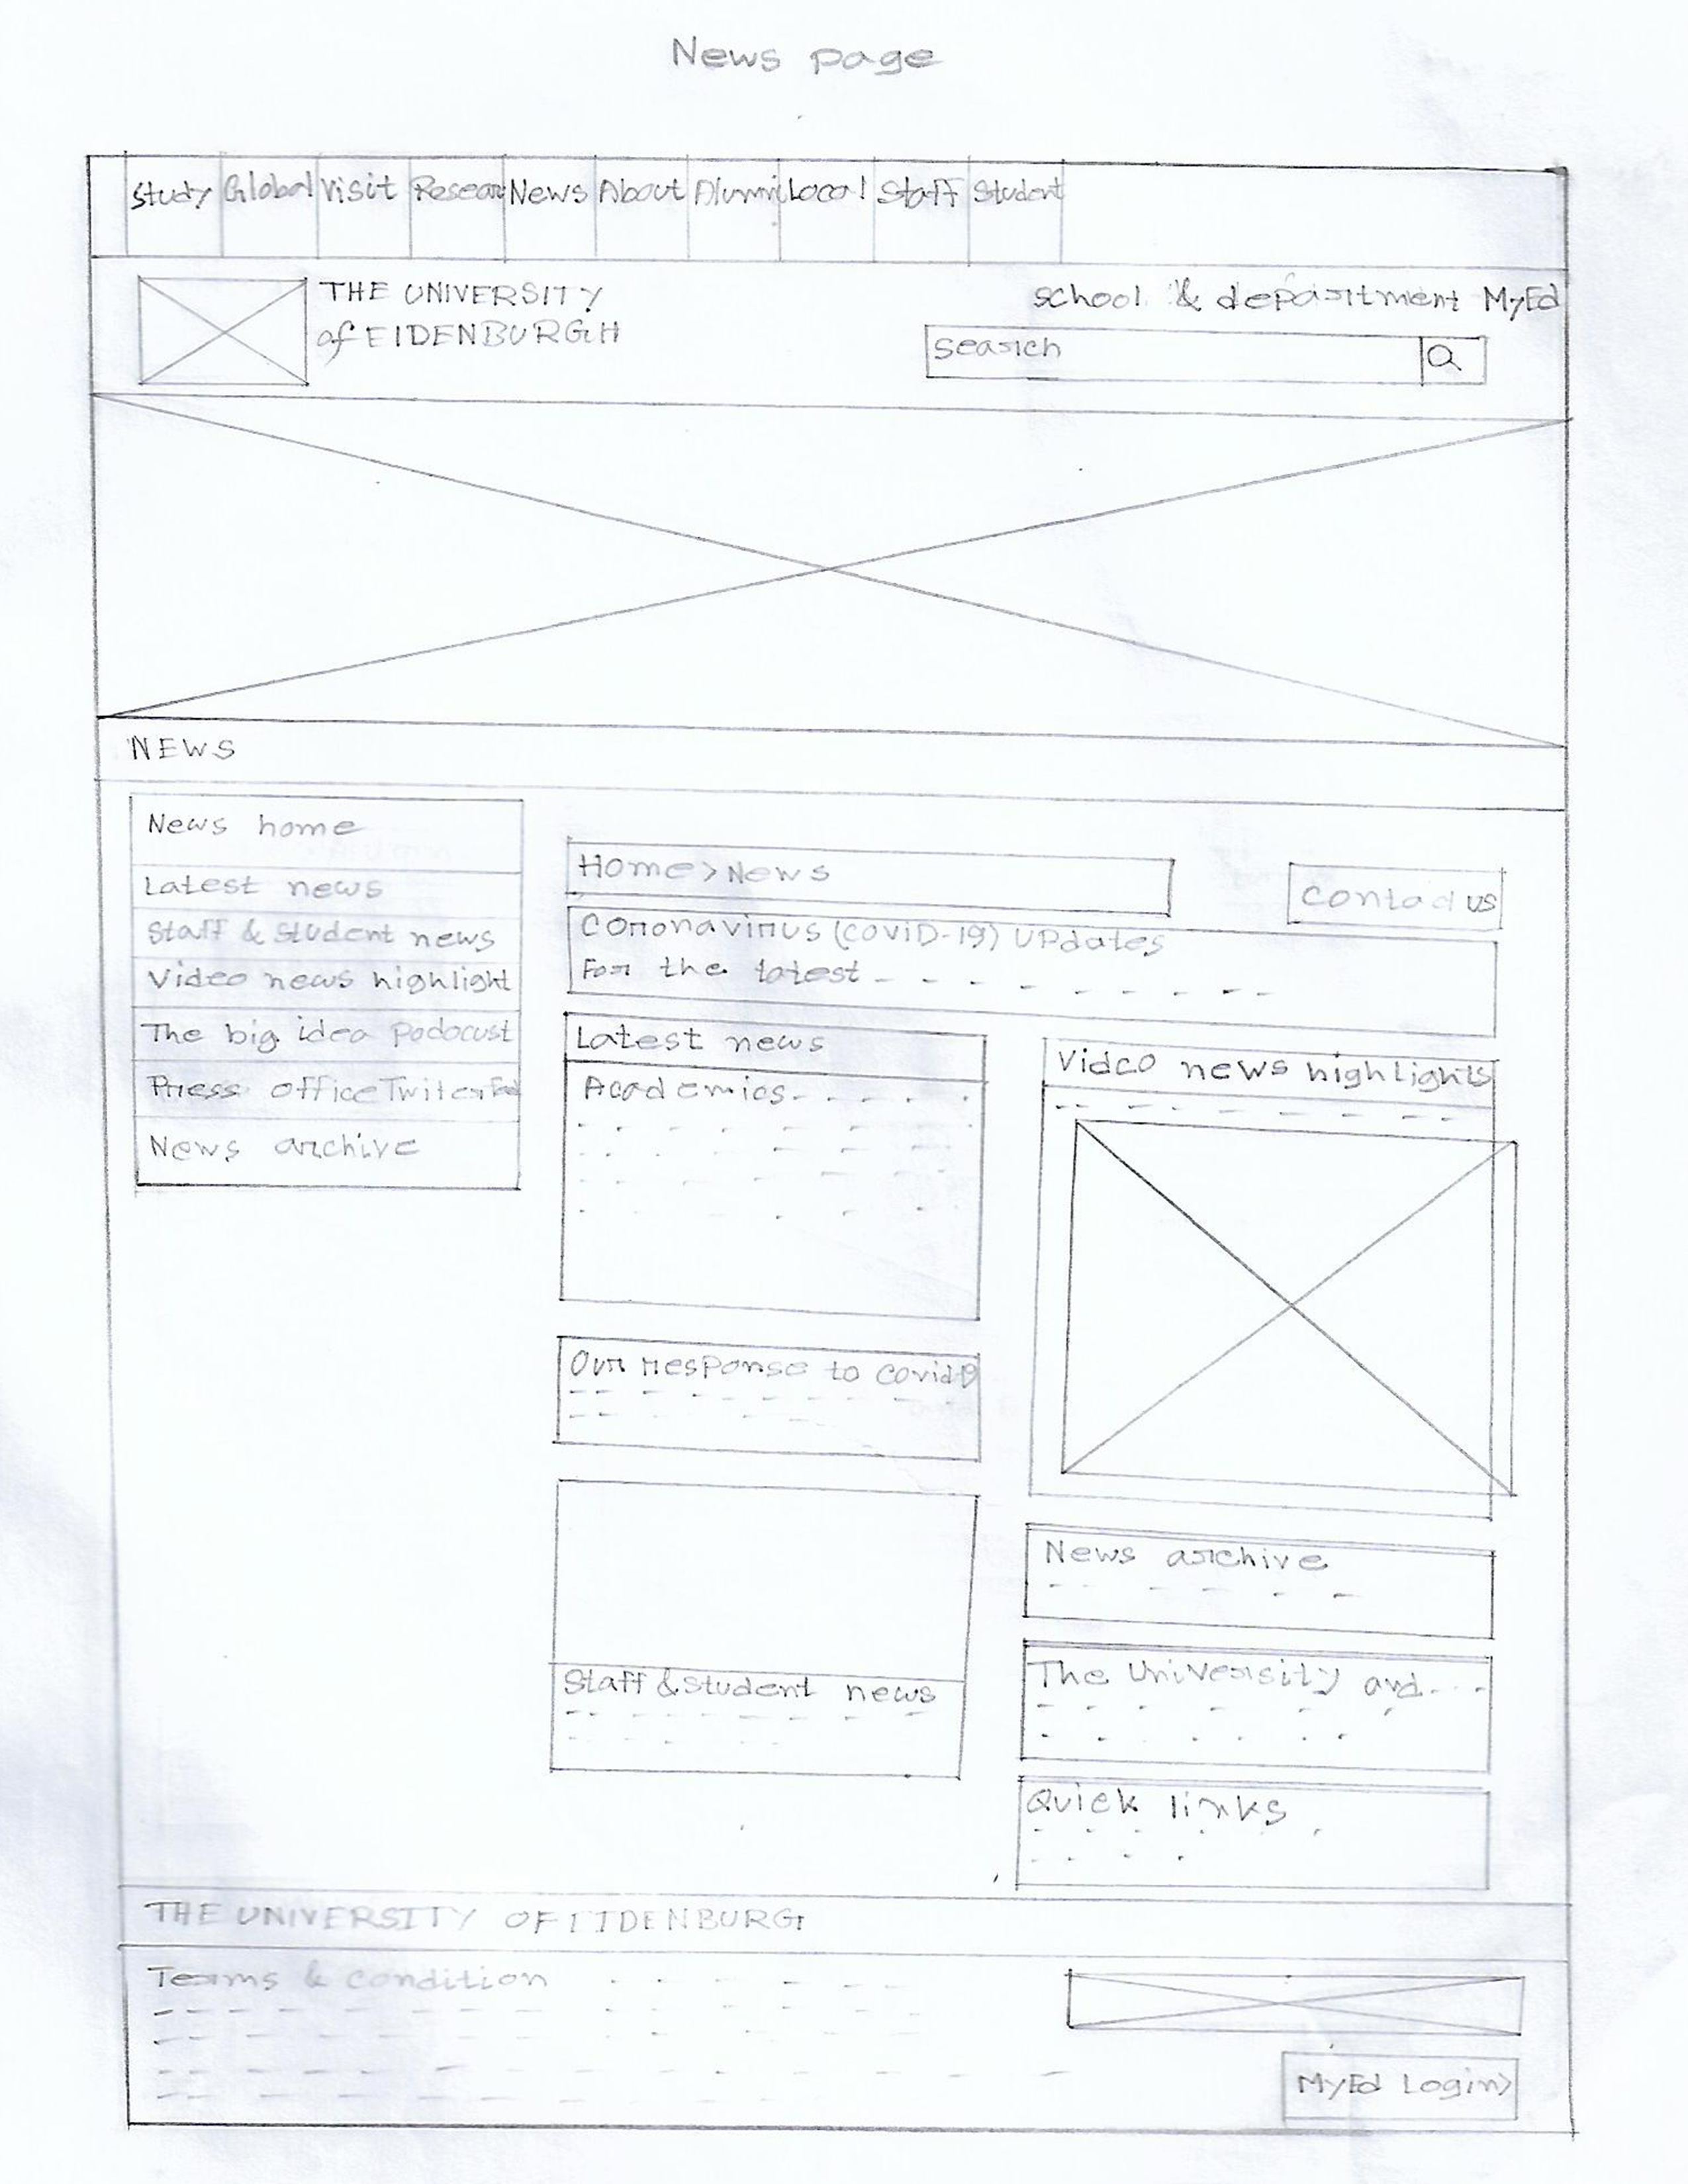 News page
Study Global Visit Resear News About Alumni Local Staff Student
THE UNIVERSITY
of EIDENBURGH
school & department MyEd
search
NEWS
News home
Latest news
Staff & Student news
Video news highlight
The big idea Podocust
Press office Twiter
News archive
Home > News
Contad us
Coronavirus (COVID-19) UPdates
For the latest
Latest news
Academics
Our response to Covid
Staff & student news
Video news highlights
News archive
The University and
Quick links
THE UNIVERSITY OF EIDENBURG
Terms & condition
MyEd Login>